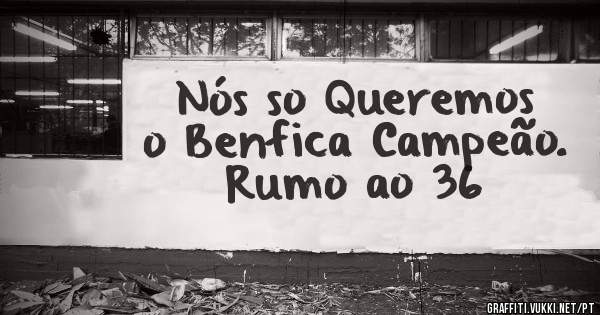 Nós so Queremos
o Benfica Campeão.
Rumo ao 36
GRAFFITI.VUKKI.NET/PT